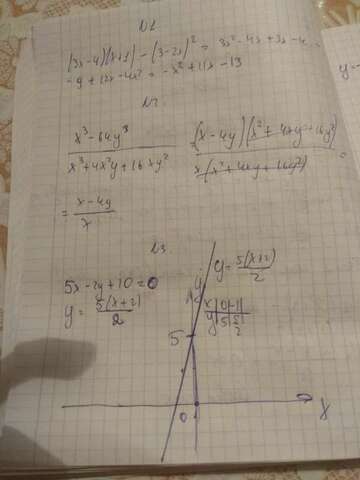 №1
(3x-4)(x+1)-(3-2x)² = 3x²-4x+3x-4-
-9+12x-4x² = -x²+11x-13
№2
x³-64y³ / x³+4x²y+16xy² = (x-4y)(x²+4xy+16y²) / x(x²+4xy+16y²) =
= x-4y / x
№3
5x-2y+10=0
y = 5(x+2) / 2
y = 5(x+2) / 2
y
x | 0 | -1
y | 5 | 5/2
5
0
x
y=